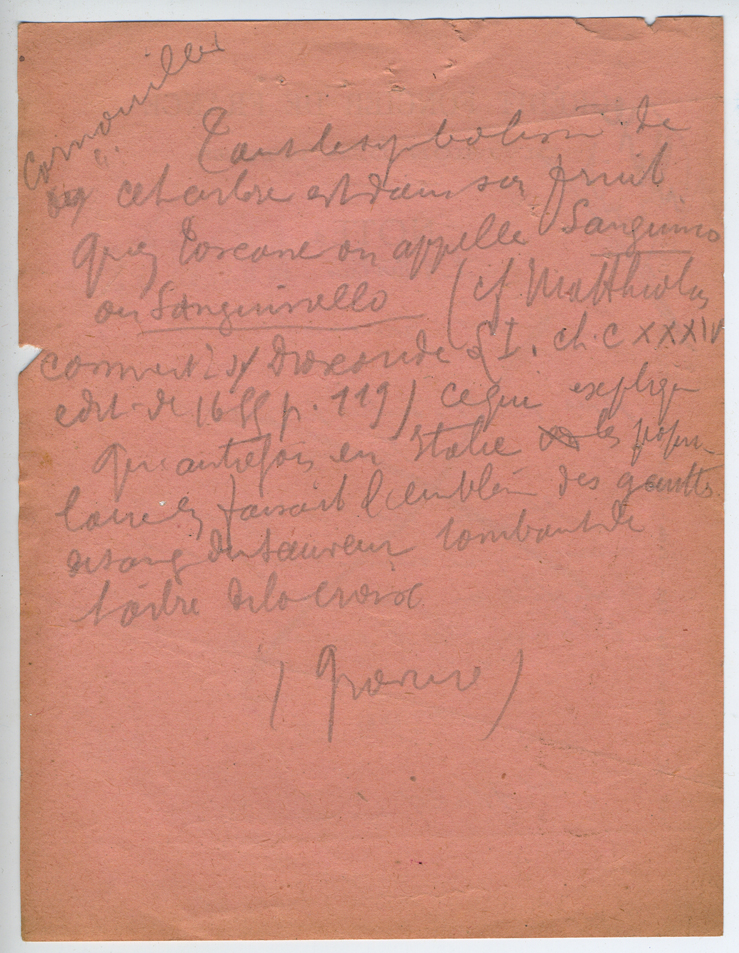 Cornouiller
Tout le symbolisme de
cet arbre est dans son fruit
qu'en Toscane on appelle Sanguino
ou Sanguinello (cf Matthiolus
comment. s/ Dioscoride L I. ch. CXXXIV
edit. de 1655 p. 119) ce qui explique
qu'autrefois en Italie les popu-
laires en faisait l'emblème des gouttes
de sang du Sauveur tombant de
l'arbre de la croix
( )